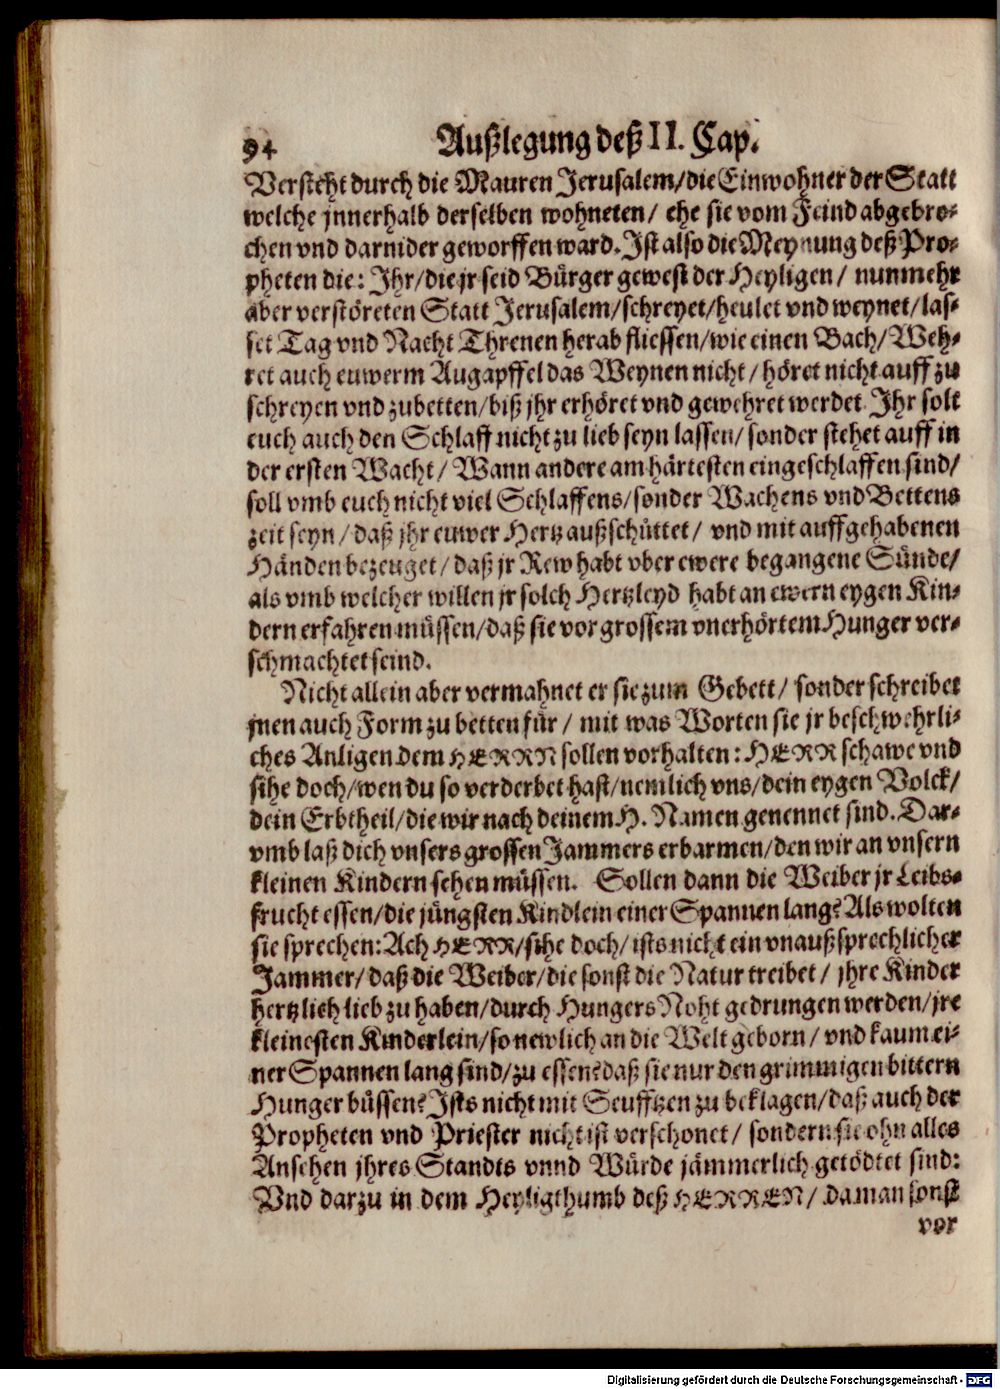 94 Außlegung deß II. Cap.
Versteht durch die Mauren Jerusalem/die Einwohner der Statt
welche jnnerhalb derselben wohneten/ ehe sie vom Feind abgebro-
chen vnd darnider geworffen ward. Ist also die Meynung deß Pro-
pheten die: Ihr/die jr seid Bürger gewest der Heyligen/ nunmehr
aber verstöreten Statt Jerusalem/schreyet/heulet vnd weynet/las-
set Tag vnd Nacht Threnen herab fliessen/wie einen Bach/Weh-
ret auch euwerm Augapffel das Weynen nicht/ höret nicht auff zu
schreyen vnd zubetten/biß jhr erhöret vnd gewehret werdet. Ihr solt
euch auch den Schlaff nicht zu lieb seyn lassen/ sonder stehet auff in
der ersten Wacht/ Wann andere am härtesten eingeschlaffen sind/
soll vmb euch nicht viel Schlaffens/sonder Wachens vnd Bettens
zeit seyn/ daß jhr euwer Hertz außschüttet/ vnd mit auffgehabenen
Händen bezeuget/ daß jr Rew habt vber ewere begangene Sünde/
als vmb welcher willen jr solch Hertzleyd habt an ewern eygen Kin-
dern erfahren müssen/daß sie vor grossem vnerhörtem Hunger ver-
schmachtet seind.
Nicht allein aber vermahnet er sie zum Gebett/ sonder schreibet
jnen auch Form zu betten für/ mit was Worten sie jr beschwehrli-
ches Anligen dem HERRN sollen vorhalten: HERR schawe vnd
sihe doch/wen du so verderbet hast/nemlich vns/dein eygen Volck/
dein Erbtheil/die wir nach deinem H. Namen genennet sind. Dar-
vmb laß dich vnsers grossen Jammers erbarmen/den wir an vnsern
kleinen Kindern sehen müssen. Sollen dann die Weiber jr Leibs-
frucht essen/die jüngsten Kindlein einer Spannen lang? Als wolten
sie sprechen: Ach HERR/sihe doch/ists nicht ein vnaußsprechlicher
Jammer/daß die Weiber/die sonst die Natur treibet/ jhre Kinder
hertzlich lieb zu haben/durch Hungers Noht gedrungen werden/jre
kleinesten Kinderlein/so newlich an die Welt geborn/ vnd kaum ei-
ner Spannen lang sind/zu essen? daß sie nur den grimmigen bittern
Hunger büssen? Ists nicht mit Seufftzen zu beklagen/daß auch der
Propheten vnd Priester nicht ist verschonet/ sondern sie ohn alles
Ansehen jhres Standts vnnd Würde jämmerlich getödtet sind:
Vnd darzu in dem Heyligthumb deß HERREN/ da man sonst
vor
Digitalisierung gefördert durch die Deutsche Forschungsgemeinschaft - DFG